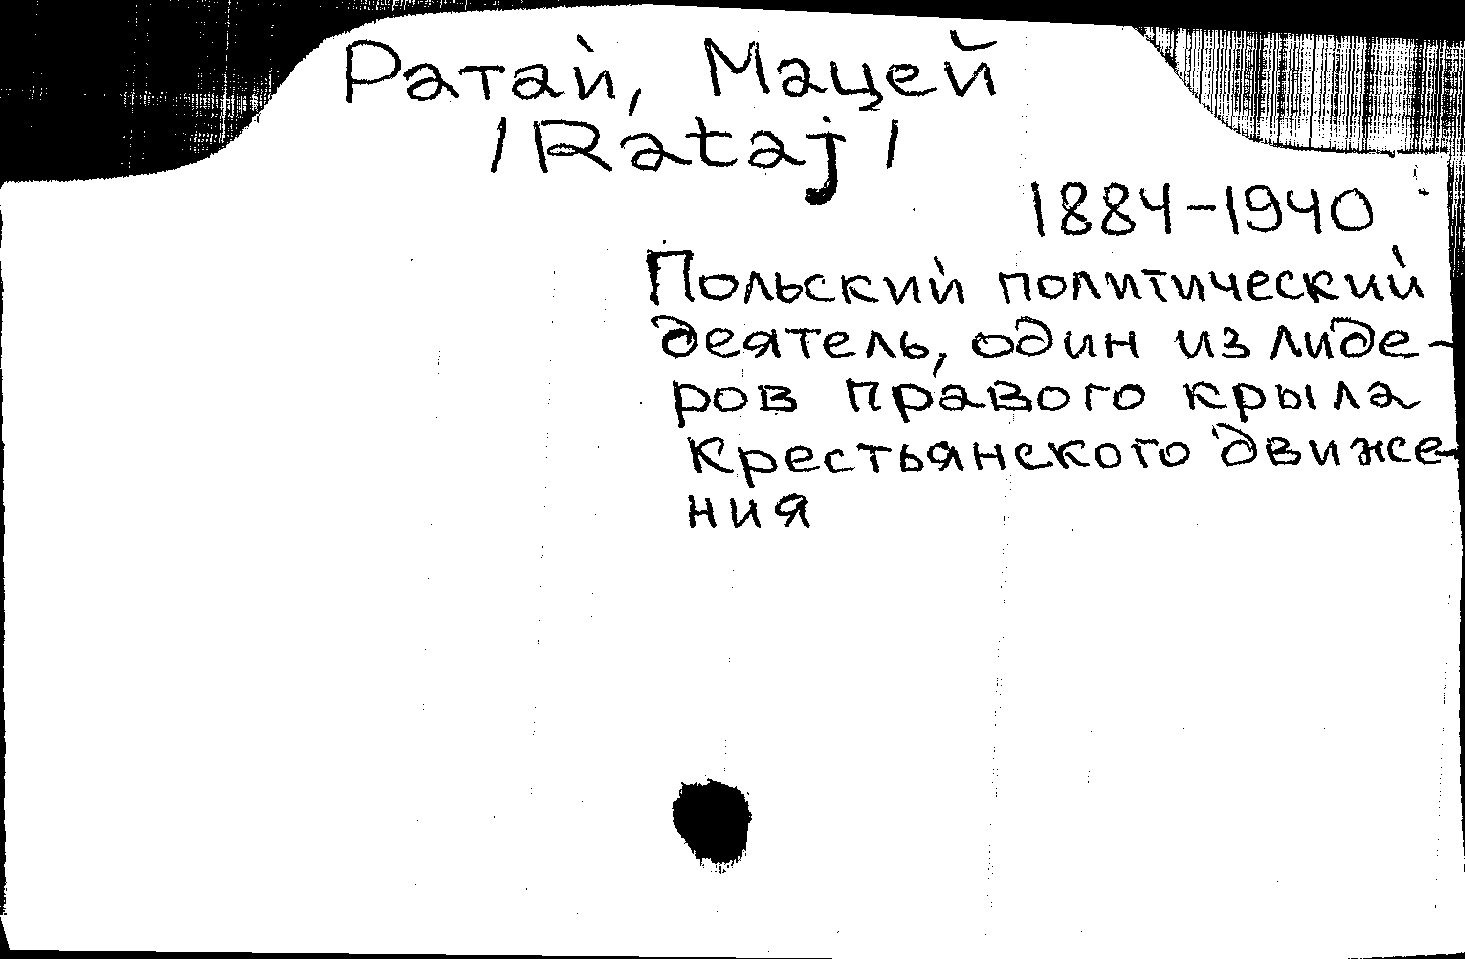 Ратай, Мацей
/Rataj/
1884-1940
Польский политический
деятель, один из лиде-
ров правого крыла
крестьянского движе-
ния